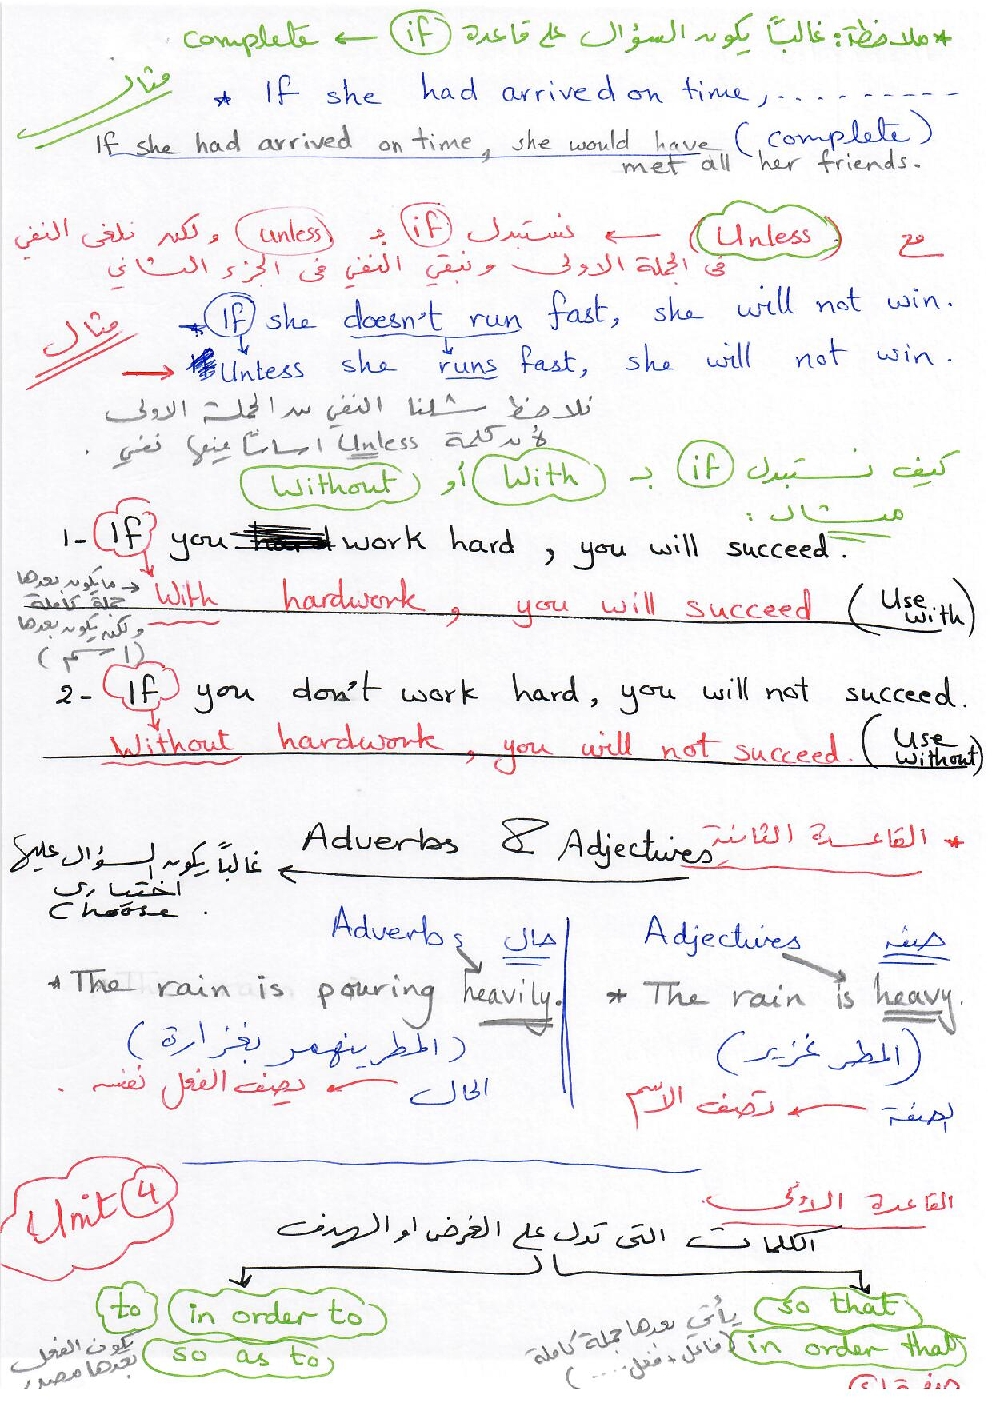 * ملاحظة: غالباً يكون السؤال على قاعدة if ← complete
مثال
* If she had arrived on time, ..........
(complete)
If she had arrived on time, she would have met all her friends.
Unless ← نستبدل if بـ unless ولكن نلغي النفي
في الجملة الاولى ونبقي النفي في الجزء الثاني
مثال
* If she doesn't run fast, she will not win.
→ Unless she runs fast, she will not win.
نلاحظ شلنا النفي من الجملة الاولى
لأن كلمة Unless اساساً فيها نفي.
كيف نستبدل if بـ With أو Without
مثال:
1- If you work hard, you will succeed.
With hardwork, you will succeed (Use with)
← مايكون بعدها
جملة كاملة
ولكن يكون بعدها
(اسم)
2- If you don't work hard, you will not succeed.
Without hardwork, you will not succeed. (Use without)
* القاعدة الثانية Adverbs & Adjectives
غالباً يكون السؤال عليها
اختياري
choose.
صفة Adjectives
* The rain is heavy.
(المطر غزير)
الصفة ← تصف الاسم
حال Adverbs
* The rain is pouring heavily.
(المطر ينهمر بغزارة)
الحال ← يصف الفعل نفسه.
Unit 4
القاعدة الاولى
الكلمات التي تدل على الغرض او الهدف
so that
in order that
يأتي بعدها جملة كاملة
(فاعل + فعل ....)
to
in order to
so as to
يكون الفعل
بعدها مصدر